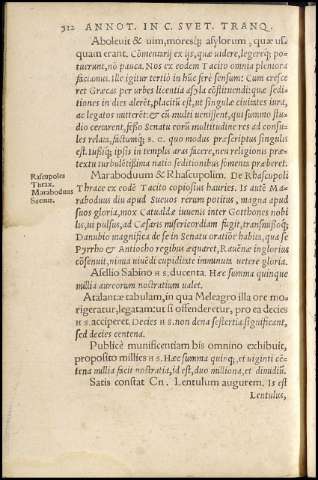 312 ANNOT. IN C. SVET. TRANQ.
Aboleuit & uim, moresq; asylorum, quæ us-
quam erant. Cōmentarij ex ijs, quæ uidere, legereq; po-
tuerunt, nō pauca. Nos ex eodem Tacito omnia pleniora
faciamus. Ille igitur tertio in hūc ferè sensum: Cum cresce
ret Græcas per urbes licentia asyla cōstituendi: quæ sedi-
tiones in dies alerēt, placitū est, ut singulæ ciuitates iura,
ac legatos mitterēt: & cū multi uenissent, qui summo stu-
dio cerarent, fesso Senatu eorū multitudine res ad consu-
les relata, factumq; S. C. quo modus præscriptus singulis
est. Iussiq; ipsis in templis aras facere, neu religionis præ-
textu turbulētißima natio seditionibus fomenta præberet.
Maraboduum & Rhascupolim. De Rhascupoli
Rascupolis
Thrax.
Maraboduus
Sueuus.
Thrace ex eodē Tacito copiosius hauries. Is autē Ma-
raboduus diu apud Sueuos rerum potitus, magna apud
suos gloria, mox Catualdæ iuuenis inter Gotthones nobi
lis, ui pulsus, ad Cæsaris misericordiam fugit, transmissoq;
Danubio magnifica de se in Senatu oratiōe habita, quæ se
Pyrrho & Antiocho regibus æquaret, Rauēnæ inglorius
cōsenuit, nimia uiuēdi cupiditate imminuta uetere gloria.
Asellio Sabino HS. ducenta. Hæc summa quinque
millia aureorum nostratium ualet.
Atalantæ tabulam, in qua Meleagro illa ore mo-
rigeratur, legatam: ut si offenderetur, pro ea decies
HS. acciperet. Decies HS. non dena sestertia significant,
sed decies centena.
Publicè munificentiam bis omnino exhibuit,
proposito millies HS. Hæc summa quinq; et uiginti cē-
tena millia facit nostratia, id est, duo miliona, et dimidiū.
Satis constat Cn. Lentulum augurem. Is est
Lentulus,